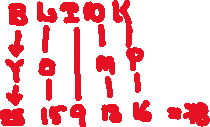 B L I N K
Y O M P
25 15 9 13 16 = 78